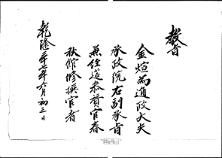 教旨
金煊為通政大夫
承政院右副承旨
兼經筵參贊官春
秋館修撰官者
乾隆三十七年六月初三日